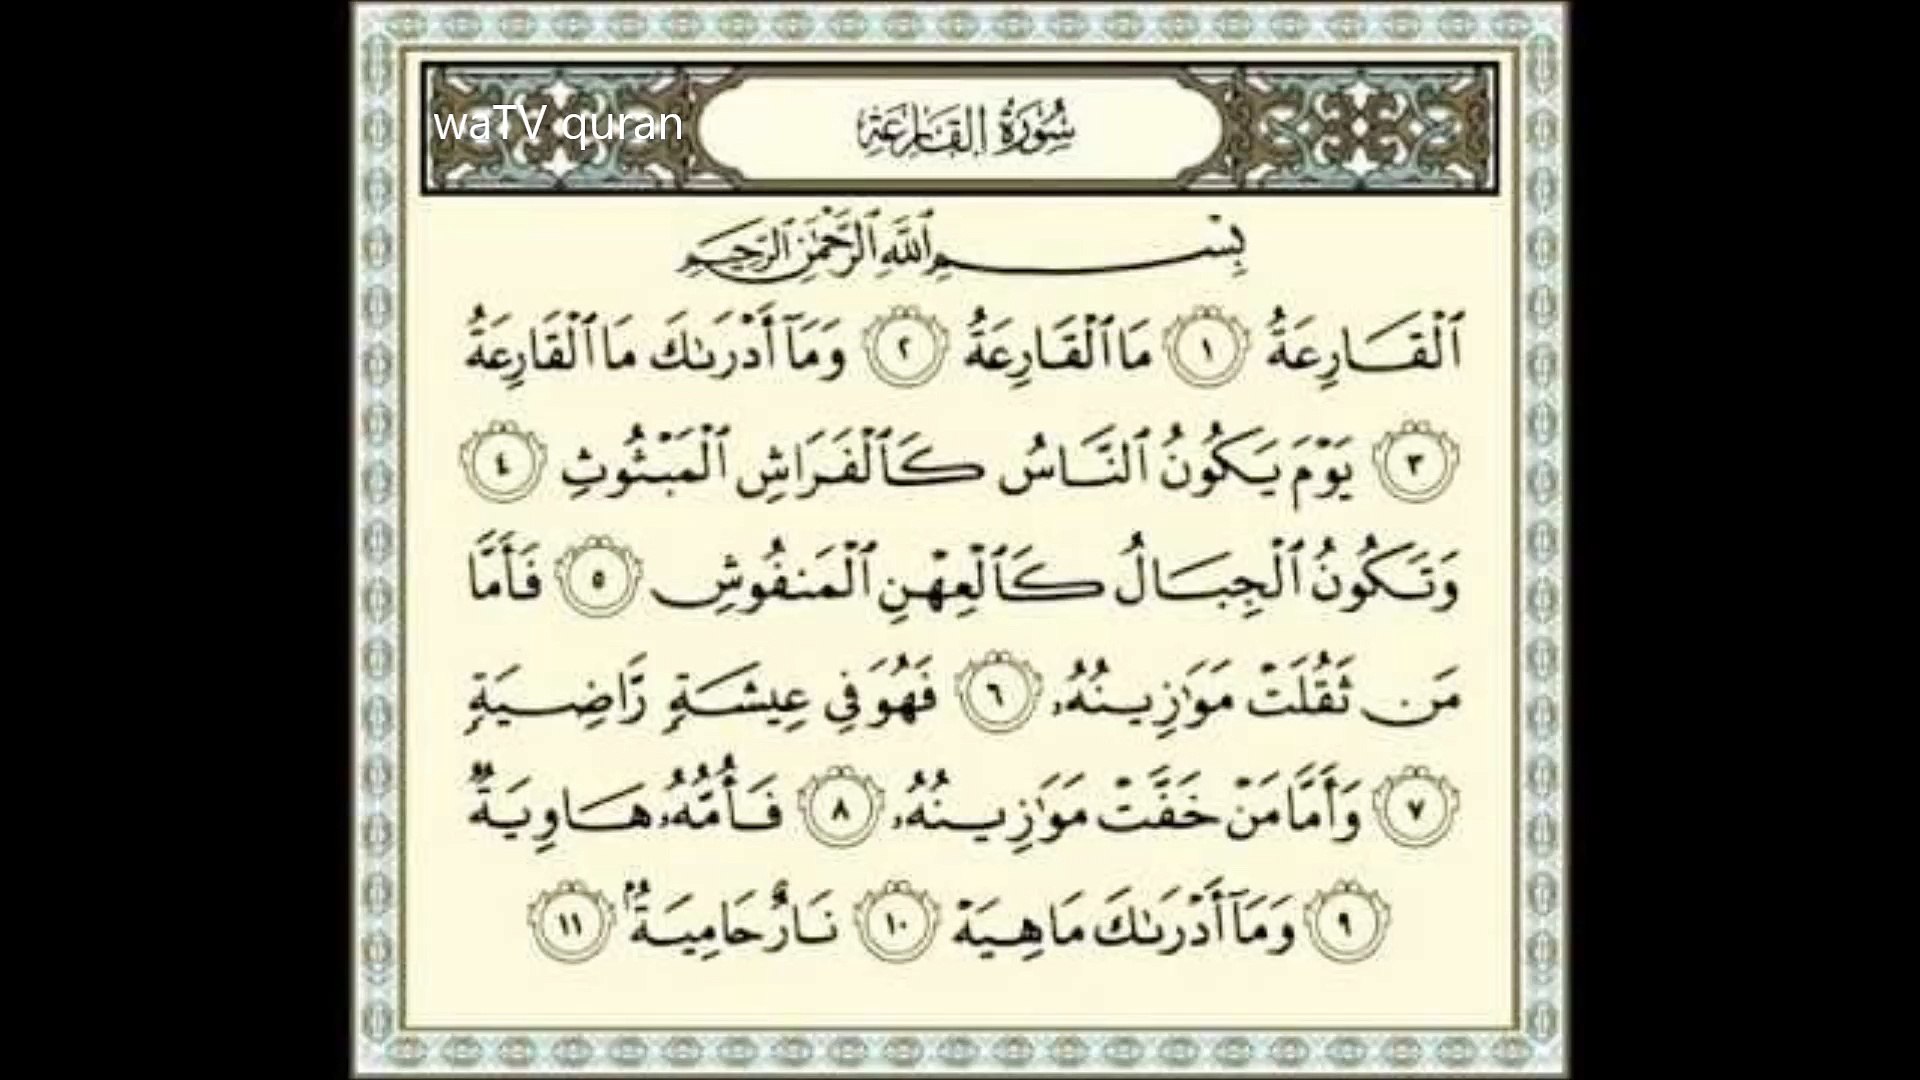 waTV quran
سُورَةُ القَارِعَةِ
بِسْمِ ٱللَّهِ ٱلرَّحْمَٰنِ ٱلرَّحِيمِ
ٱلْقَارِعَةُ ١ مَا ٱلْقَارِعَةُ ٢ وَمَآ أَدْرَىٰكَ مَا ٱلْقَارِعَةُ
٣ يَوْمَ يَكُونُ ٱلنَّاسُ كَٱلْفَرَاشِ ٱلْمَبْثُوثِ ٤
وَتَكُونُ ٱلْجِبَالُ كَٱلْعِهْنِ ٱلْمَنفُوشِ ٥ فَأَمَّا
مَن ثَقُلَتْ مَوَٰزِينُهُۥ ٦ فَهُوَ فِى عِيشَةٍ رَّاضِيَةٍ
٧ وَأَمَّا مَنْ خَفَّتْ مَوَٰزِينُهُۥ ٨ فَأُمُّهُۥ هَاوِيَةٌ
٩ وَمَآ أَدْرَىٰكَ مَا هِيَهْ ١٠ نَارٌ حَامِيَةٌۢ ١١